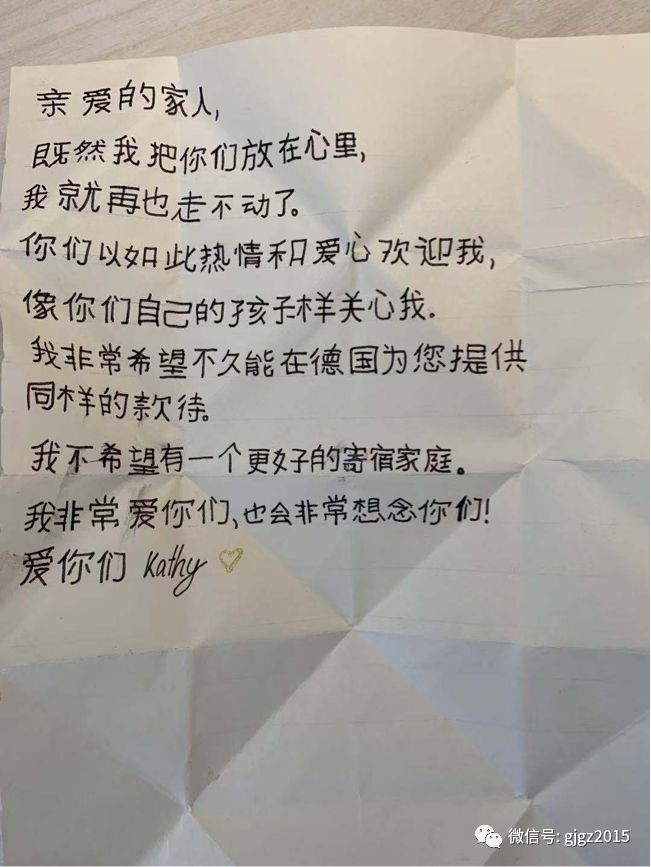 亲爱的家人,
既然我把你们放在心里,
我就再也走不动了。
你们以如此热情和爱心欢迎我,
像你们自己的孩子样关心我.
我非常希望不久能在德国为您提供
同样的款待。
我不希望有一个更好的寄宿家庭。
我非常爱你们,也会非常想念你们!
爱你们 Kathy
微信号: gjgz2015